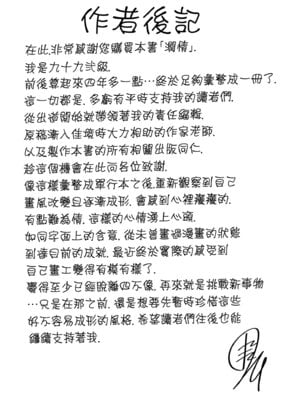 作者後記
在此,非常感謝您購買本書「溺情」.
我是九十九弐級.
前後算起來四年多一點…終於足夠彙整成一冊了.
這一切都是,多虧有平時支持我的讀者們.
從出道開始就帶領著我的責任編輯.
原稿漸入佳境時大力相助的作家老師.
以及製作本書的所有相關出版同仁.
趁這個機會在此向各位致謝.
像這樣彙整成單行本之後,重新觀察到自己
畫風改變日益漸成形,會感到心裡癢癢的.
有點難為情,這樣的心情湧上心頭.
如同字面上的含意,從未曾畫過漫畫的狀態
到拿目前的成就,最近終於實際的感受到
自己畫工變得有模有樣了.
畫得至少已經脫離四不像,再來就是挑戰新事物
…只是在那之前,還是想要先暫時珍惜這些
好不容易成形的風格,希望讀者們往後也能
繼續支持著我.